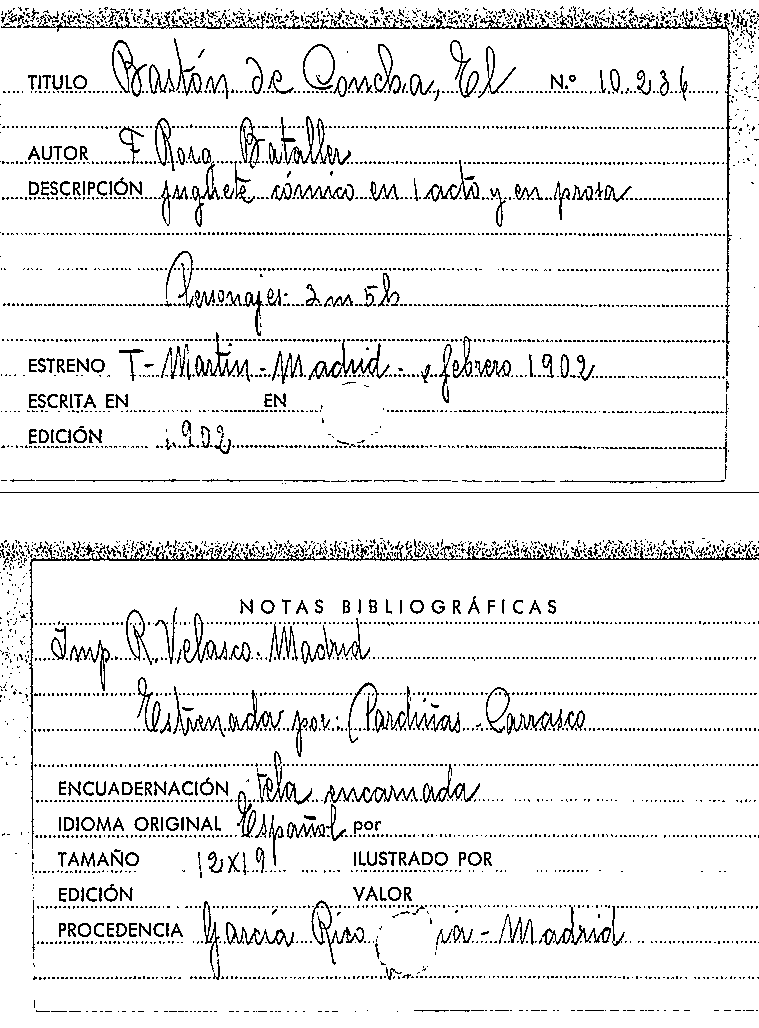 TITULO Bastón de Concha, El N.º 10.236
AUTOR F Rosa Bataller
DESCRIPCIÓN jughete cómico en 1 acto y en prosa
Personajes- 3 m 5 h
ESTRENO T- Martin - Madrid - febrero 1902
ESCRITA EN EN
EDICIÓN 1902
NOTAS BIBLIOGRÁFICAS
Imp. R. Velasco. Madrid
Estrenada por: Pardiñas - Carrasco
ENCUADERNACIÓN tela encarnada
IDIOMA ORIGINAL Español por
TAMAÑO 12x19 ILUSTRADO POR
EDICIÓN VALOR
PROCEDENCIA García Rico - Madrid